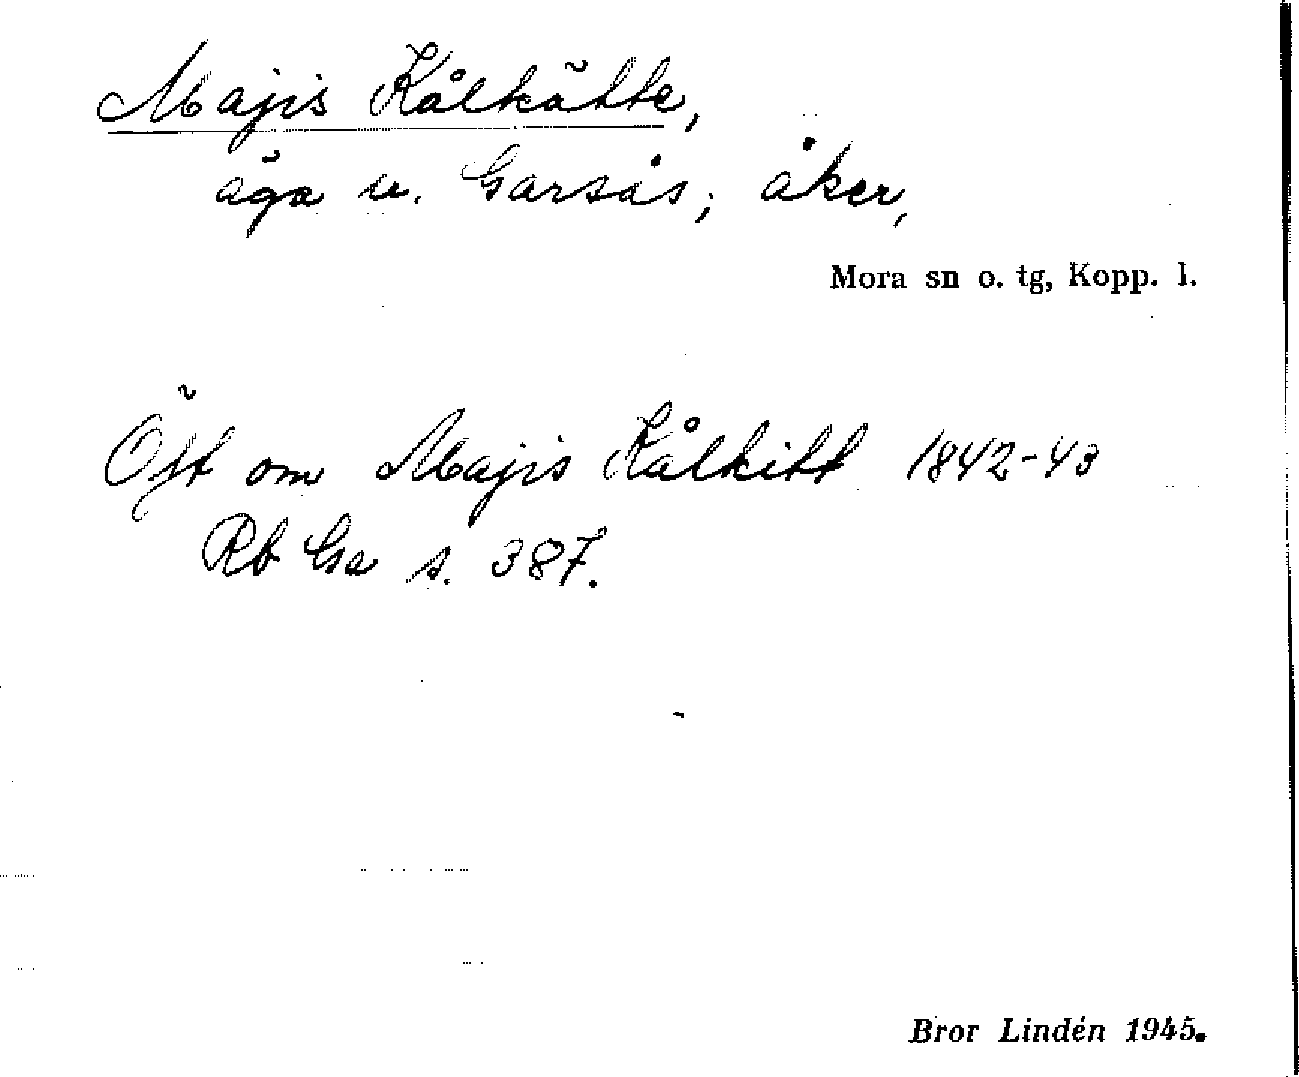 Majis Kålkätte,
äga u. Garsås; åker,
Mora sn o. tg, Kopp. l.
Öft om Majis Kålkitt 1842-43
Rb Ga s. 387.
Bror Lindén 1945.